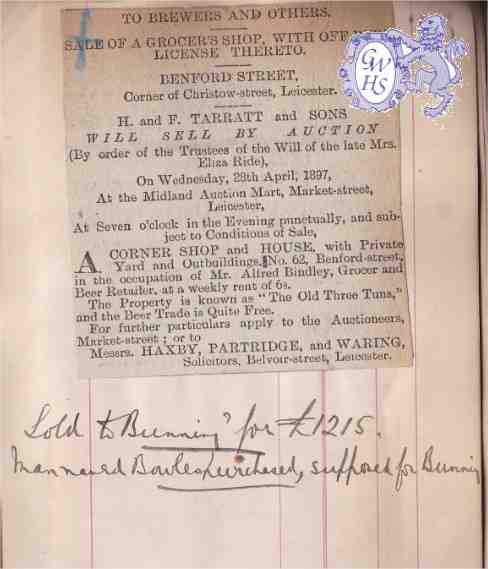 TO BREWERS AND OTHERS.
SALE OF A GROCER'S SHOP, WITH OFF
LICENSE THERETO.
BENFORD STREET,
Corner of Christow-street, Leicester.
H. and F. TARRATT and SONS
WILL SELL BY AUCTION
(By order of the Trustees of the Will of the late Mrs.
Eliza Ride),
On Wednesday, 28th April, 1897,
At the Midland Auction Mart, Market-street,
Leicester,
At Seven o'clock in the Evening punctually, and sub-
ject to Conditions of Sale,
A CORNER SHOP and HOUSE, with Private
Yard and Outbuildings, No. 62, Benford-street,
in the occupation of Mr. Alfred Bindley, Grocer and
Beer Retailer, at a weekly rent of 6s.
The Property is known as "The Old Three Tuns,"
and the Beer Trade is Quite Free.
For further particulars apply to the Auctioneers,
Market-street; or to
Messrs. HAXBY, PARTRIDGE, and WARING,
Solicitors, Belvoir-street, Leicester.
GWHS
Sold to Bunning' for £1215.
Man named Bowles purchased, supposed for Bunning